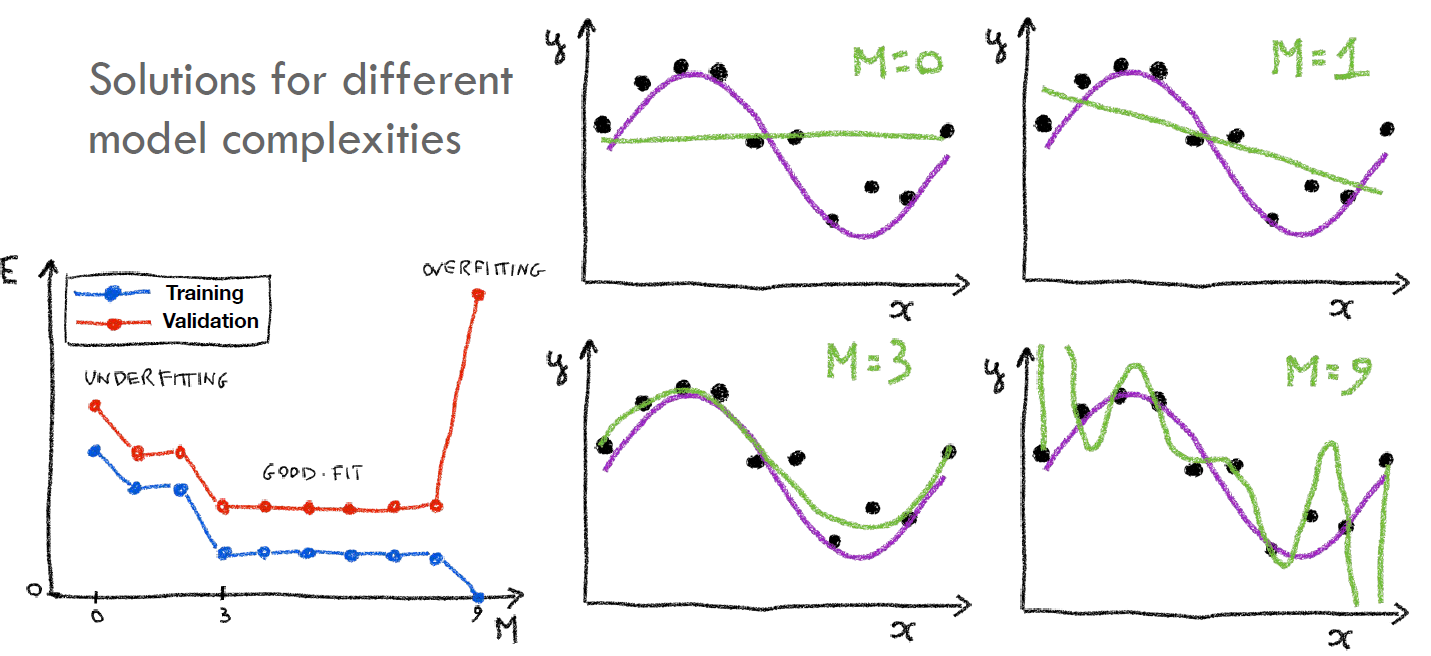 Solutions for different
model complexities
E
Training
Validation
UNDERFITTING
GOOD·FIT
OVERFITTING
0
0
3
9
M
y
M=0
x
y
M=1
x
y
M=3
x
y
M=9
x